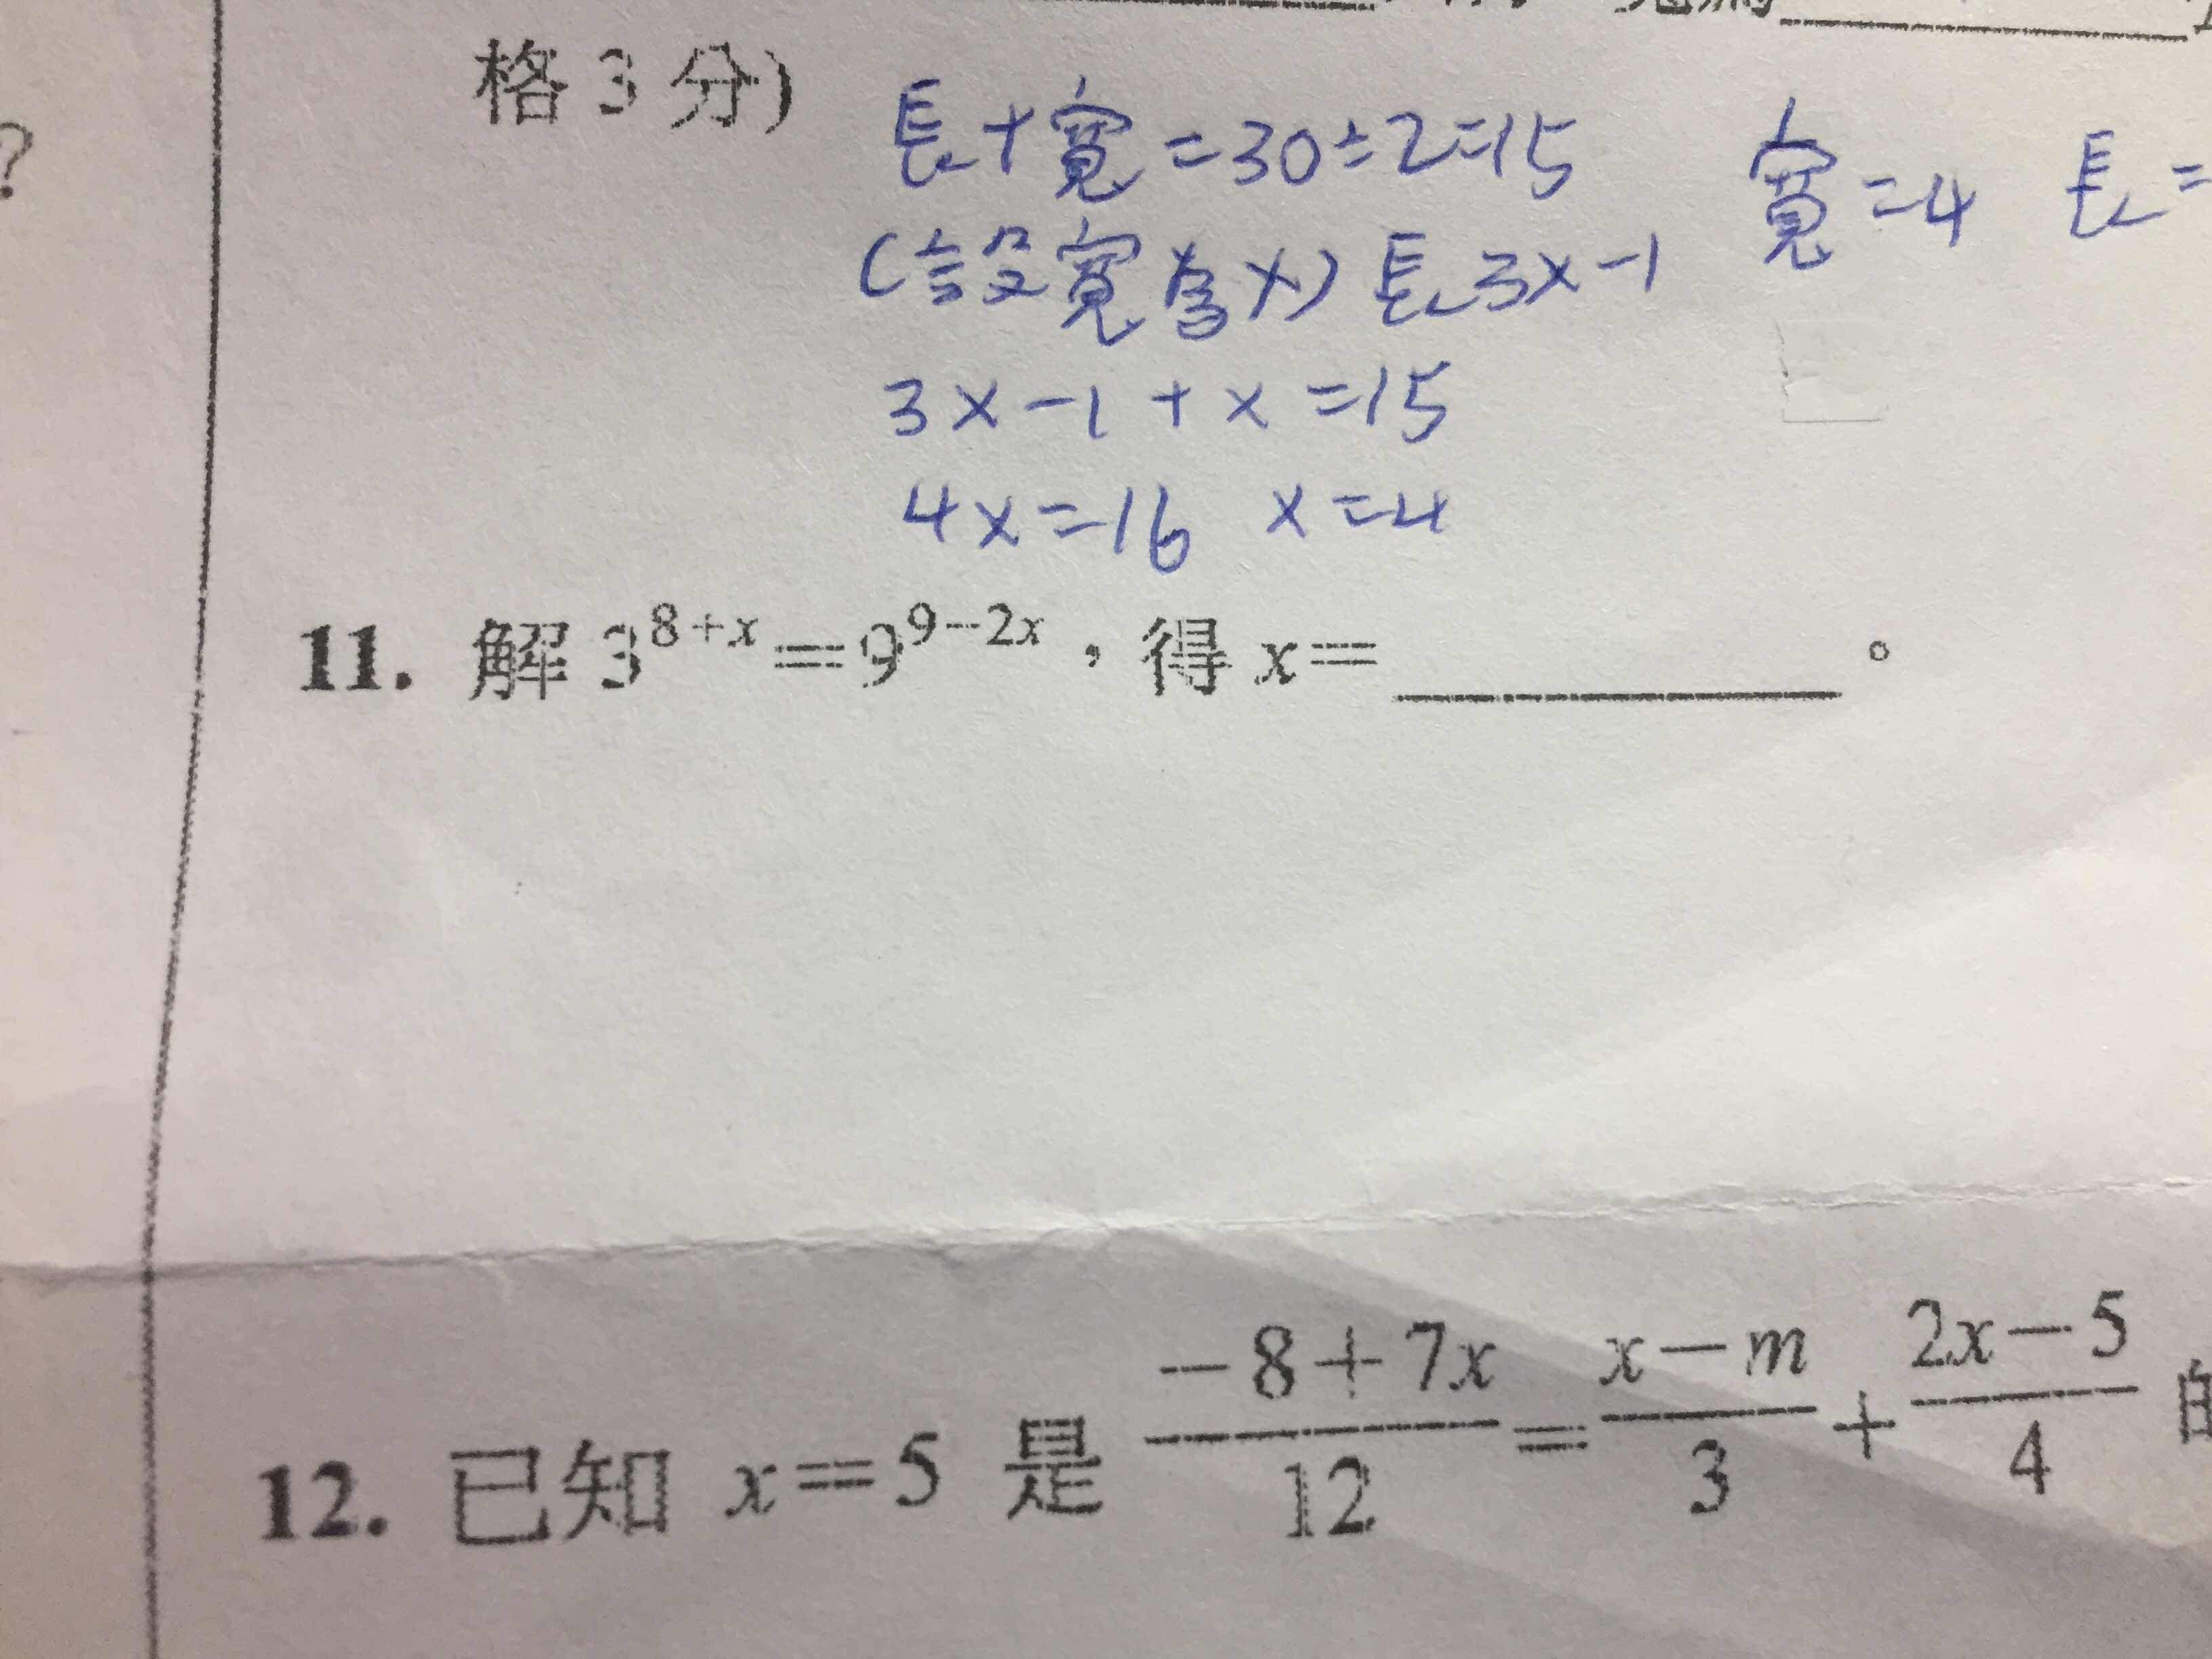 ?
格 3 分)
長+寬=30÷2=15 寬=4 長=
(設寬為x)長3x-1
3x-1+x=15
4x=16 x=4
11. 解 3^{8+x}=9^{9-2x},得 x=__________。
12. 已知 x=5 是 \frac{-8+7x}{12}=\frac{x-m}{3}+\frac{2x-5}{4} 的